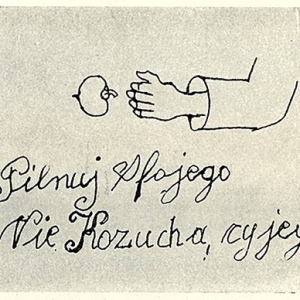 Pilnuj Sfojego
Nie Kozucha, cyjeg